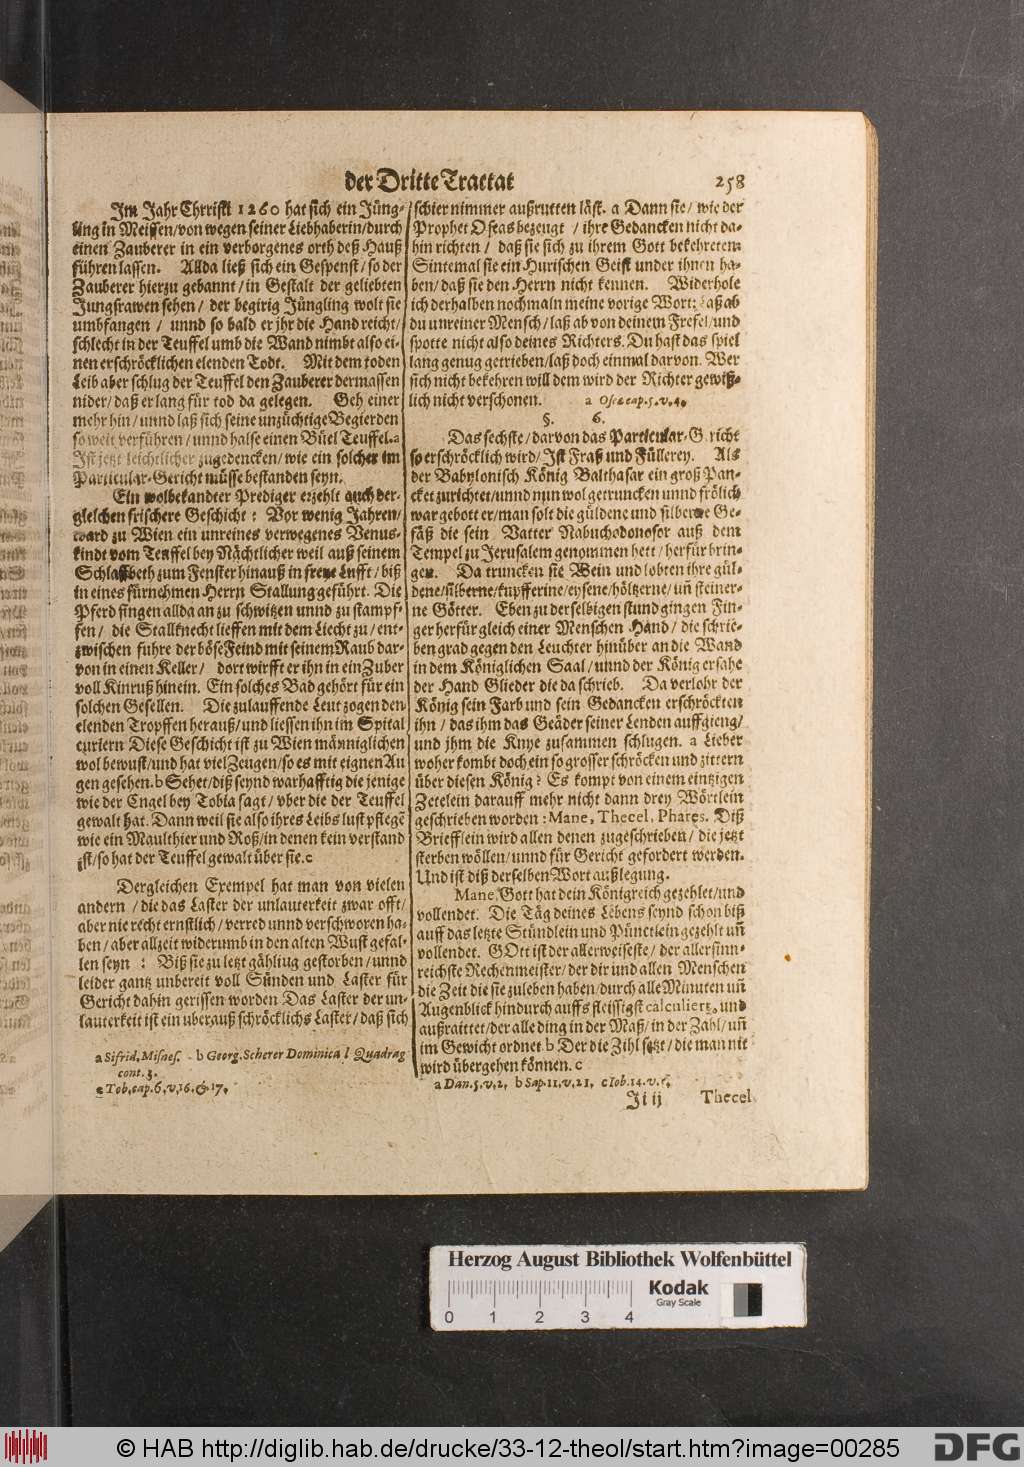 der Dritte Tractat 258
Im Jahr Chrristi 1260 hat sich ein Jüng-
ling in Meissen/von wegen seiner Liebhaberin/durch
einen Zauberer in ein verborgenes orth deß Hauß
führen lassen. Allda ließ sich ein Gespenst/so der
Zauberer hierzu gebannt/in Gestalt der geliebten
Jungfrawen sehen/ der begirig Jüngling wolt sie
umbfangen / unnd so bald er jhr die Hand reicht/
schlecht in der Teuffel umb die Wand nimbt also ei-
nen erschröcklichen elenden Todt. Mit dem toden
Leib aber schlug der Teuffel den Zauberer dermassen
nider/daß er lang für tod da gelegen. Geh einer
mehr hin/ unnd laß sich seine unzüchtige Begierden
so weit verführen/unnd halse einen Büel Teuffel.a
Ist jetzt leichtlicher zugedencken/wie ein solcher im
Particular-Gericht müsse bestanden seyn.
Ein wolbekandter Prediger erzehlt auch der-
gleichen frischere Geschicht: Vor wenig Jahren/
ward zu Wien ein unreines verwegenes Venus-
kindt vom Teuffel bey Nächtlicher weil auß seinem
Schlaffbeth zum Fenster hinauß in freye Lufft/biß
in eines fürnehmen Herrn Stallung geführt. Die
Pferd fingen allda an zu schwitzen unnd zu stampf-
fen/ die Stallknecht lieffen mit dem Liecht zu/ent-
zwischen fuhre der böse Feind mit seinem Raub dar-
von in einen Keller/ dort wirfft er ihn in ein Zuber
voll Kinruß hinein. Ein solches Bad gehört für ein
solchen Gesellen. Die zulauffende Leut zogen den
elenden Tropffen herauß/und liessen ihn im Spital
curiern Diese Geschicht ist zu Wien männiglichen
wol bewust/und hat viel Zeugen/so es mit eignen Au
gen gesehen.b Sehet/diß seynd warhafftig die jenige
wie der Engel bey Tobia sagt/vber die der Teuffel
gewalt hat. Dann weil sie also ihres Leibs lust pflegē
wie ein Maulthier und Roß/in denen kein verstand
ist/so hat der Teuffel gewalt über sie.c
Dergleichen Exempel hat man von vielen
andern /die das Laster der unlauterkeit zwar offt/
aber nie recht ernstlich/verred unnd verschworen ha-
ben/aber allzeit widerumb in den alten Wust gefal-
len seyn : Biß sie zu letzt gähling gestorben/unnd
leider gantz unbereit voll Sünden und Laster für
Gericht dahin gerissen worden Das Laster der un-
lauterkeit ist ein uberauß schröcklichs Laster/daß sich
a Sifrid. Misnes. b Georg. Scherer Dominica 1 Quadrag
cont. 3.
c Tob. cap. 6. v. 16. & 17.
schier nimmer außrutten läst. a Dann sie/wie der
Prophet Oseas bezeugt / ihre Gedancken nicht da-
hin richten / daß sie sich zu ihrem Gott bekehreten.
Sintemal sie ein Hurischen Geist under ihnen ha-
ben/daß sie den Herrn nicht kennen. Widerhole
ich derhalben nochmaln meine vorige Wort: laß ab
du unreiner Mensch/laß ab von deinem Frefel/und
spotte nicht also deines Richters. Du hast das spiel
lang genug getrieben/laß doch einmal darvon. Wer
sich nicht bekehren will dem wird der Richter gewiß-
lich nicht verschonen. a Oseæ cap. 5. v. 4.
§. 6.
Das sechste/darvon das Particular-Gericht
so erschröcklich wird/Ist Fraß und Füllerey. Als
der Babylonisch König Balthasar ein groß Pan-
cket zurichtet/unnd nun wol getruncken unnd frölich
war gebott er/man solt die güldene und silberne Ge-
fäß die sein Vatter Nabuchodonosor auß dem
Tempel zu Jerusalem genommen hett/herfür brin-
gen. Da truncken sie Wein und lobten ihre gül-
dene/silberne/kupfferine/eysene/höltzerne/uñ steiner-
ne Götter. Eben zu derselbigen stund gingen Fin-
ger herfür gleich einer Menschen Hand/die schrie-
ben grad gegen den Leuchter hinüber an die Wand
in dem Königlichen Saal/unnd der König ersahe
der Hand Glieder die da schrieb. Da verlohr der
König sein Farb und sein Gedancken erschröckten
ihn / das ihm das Geäder seiner Lenden auffgieng/
und jhm die Knye zusammen schlugen. a Lieber
woher kombt doch ein so grosser schröcken und zittern
über diesen König? Es kompt von einem eintzigen
Zetelein darauff mehr nicht dann drey Wörtlein
geschrieben worden: Mane, Thecel, Phares. Diß
Brieffein wird allen denen zugeschrieben/die jetzt
sterben wöllen/unnd für Gericht gefordert werden.
Und ist diß derselben Wort außlegung.
Mane, Gott hat dein Königreich gezehlet/und
vollendet. Die Täg deines Lebens seynd schon biß
auff das letzte Stündlein und Pünctlein gezehlt uñ
vollendet. GOtt ist der allerweiseste/der allersinn-
reichste Rechenmeister/der dir und allen Menschen
die Zeit die sie zuleben haben/durch alle Minuten uñ
Augenblick hindurch auffs fleissigst calculiert, und
außraittet/der alle ding in der Maß/in der Zahl/uñ
im Gewicht ordnet b Der die Zihl setzt/die man nit
wird übergehen können. c
a Dan. 5. v. 2. b Sap. 11. v. 21. c Iob. 14. v. 5.
Ji ij Thecel
Herzog August Bibliothek Wolfenbüttel
0 1 2 3 4
Kodak
Gray Scale
© HAB http://diglib.hab.de/drucke/33-12-theol/start.htm?image=00285
DFG